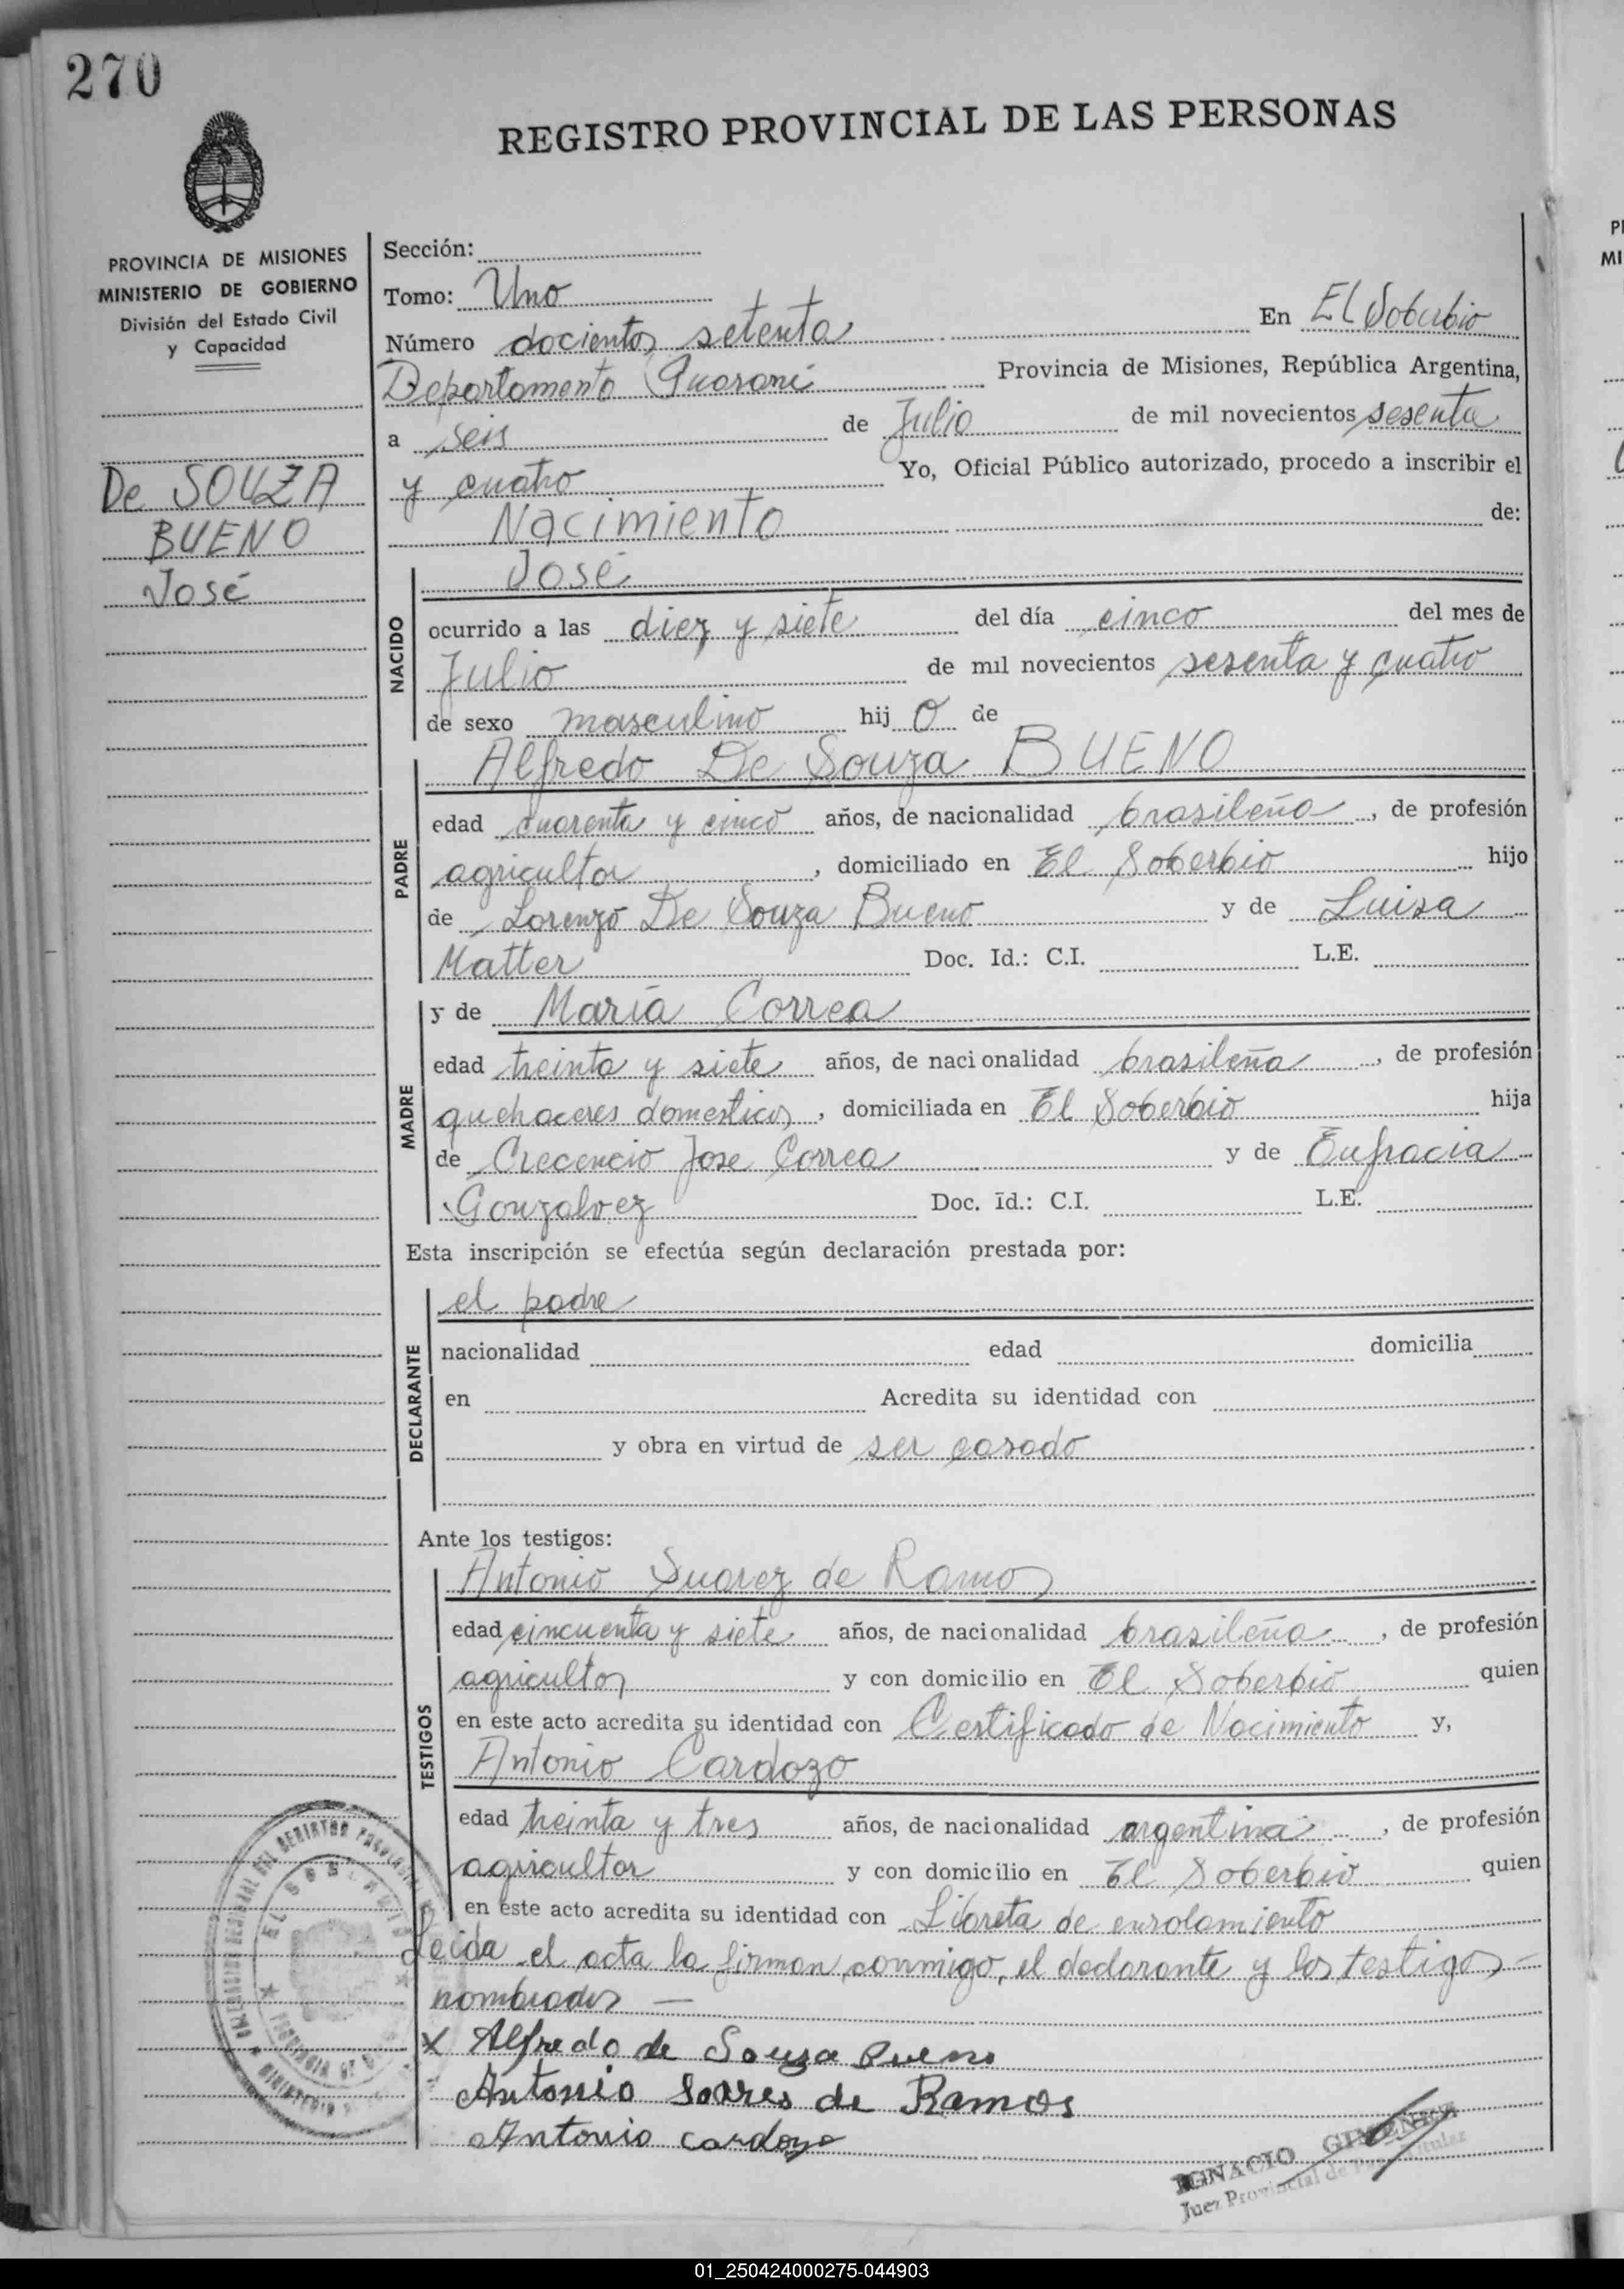 270
REGISTRO PROVINCIAL DE LAS PERSONAS
PROVINCIA DE MISIONES
MINISTERIO DE GOBIERNO
División del Estado Civil
y Capacidad
De SOUZA
BUENO
José
Sección:
Tomo: Uno
Número docientos setenta En El Soberbio
Departamento Guaraní Provincia de Misiones, República Argentina,
a seis de Julio de mil novecientos sesenta
y cuatro Yo, Oficial Público autorizado, procedo a inscribir el
Nacimiento de:
NACIDO
José
ocurrido a las diez y siete del día cinco del mes de
Julio de mil novecientos sesenta y cuatro
de sexo masculino hij o de
PADRE
Alfredo De Souza BUENO
edad cuarenta y cinco años, de nacionalidad brasileña, de profesión
agricultor, domiciliado en El Soberbio hijo
de Lorenzo De Souza Bueno y de Luisa
Matter Doc. Id.: C.I. L.E.
MADRE
y de María Correa
edad treinta y siete años, de nacionalidad brasileña, de profesión
quehaceres domesticos, domiciliada en El Soberbio hija
de Crecencio Jose Correa y de Eufracia
Gonzalvez Doc. Id.: C.I. L.E.
Esta inscripción se efectúa según declaración prestada por:
DECLARANTE
el padre
nacionalidad edad domicilia
en Acredita su identidad con
y obra en virtud de ser casado
Ante los testigos:
TESTIGOS
Antonio Suarez de Ramos
edad cincuenta y siete años, de nacionalidad brasileña, de profesión
agricultor y con domicilio en El Soberbio quien
en este acto acredita su identidad con Certificado de Nacimiento y,
Antonio Cardozo
edad treinta y tres años, de nacionalidad argentina, de profesión
agricultor y con domicilio en El Soberbio quien
en este acto acredita su identidad con Libreta de enrolamiento
Leida el acta la firman conmigo, el declarante y los testigos —
nombrados —
x Alfredo de Souza Bueno
Antonio Soares de Ramos
Antonio Cardozo
IGNACIO GIMENEZ
Juez Provincial de Paz Titular
EL SOBERBIO
01_250424000275-044903